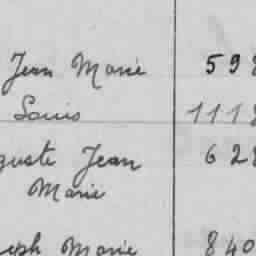 Jean Marie 598
Louis 1118
guste Jean 628
Marie
eph Marie 840